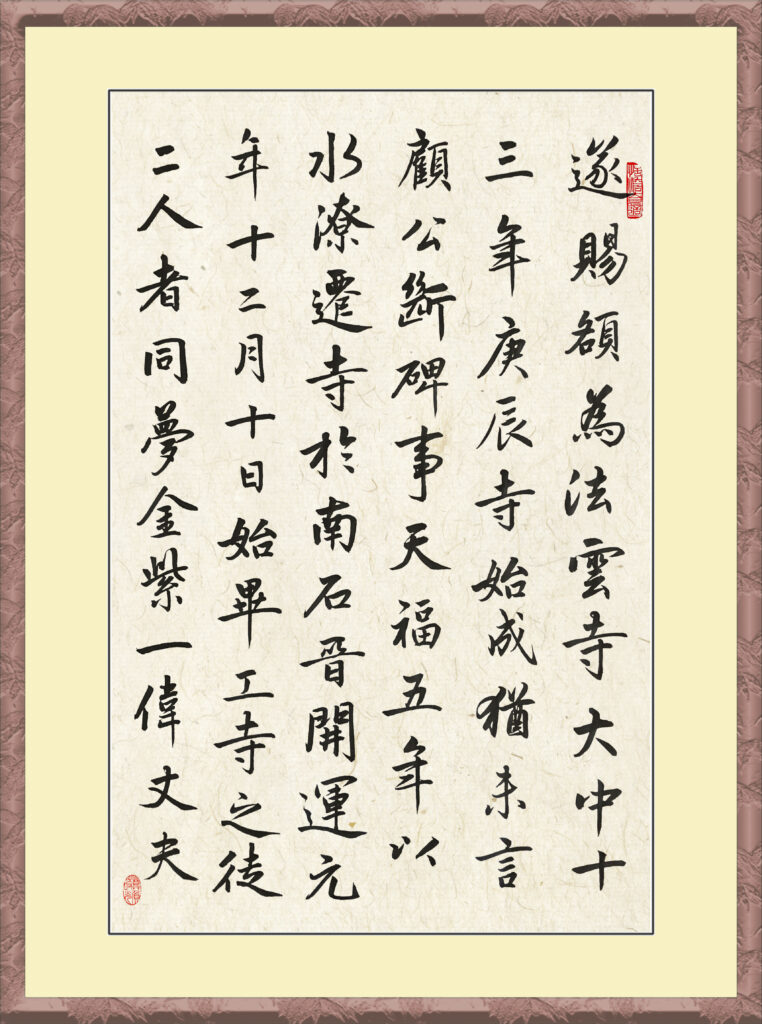 遂賜額為法雲寺大中十
三年庚辰寺始成猶未言
顧公斷碑事天福五年以
水潦遷寺於南石晉開運元
年十二月十日始畢工寺之徒
二人者同夢金紫一偉丈夫